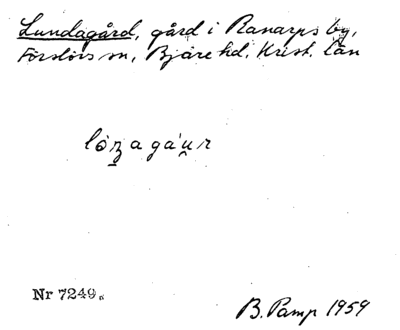 Lundagård, gård i Ranarps by,
Förslövs sn, Bjäre hd, Krist. län
Nr 7249.
B. Pamp 1959